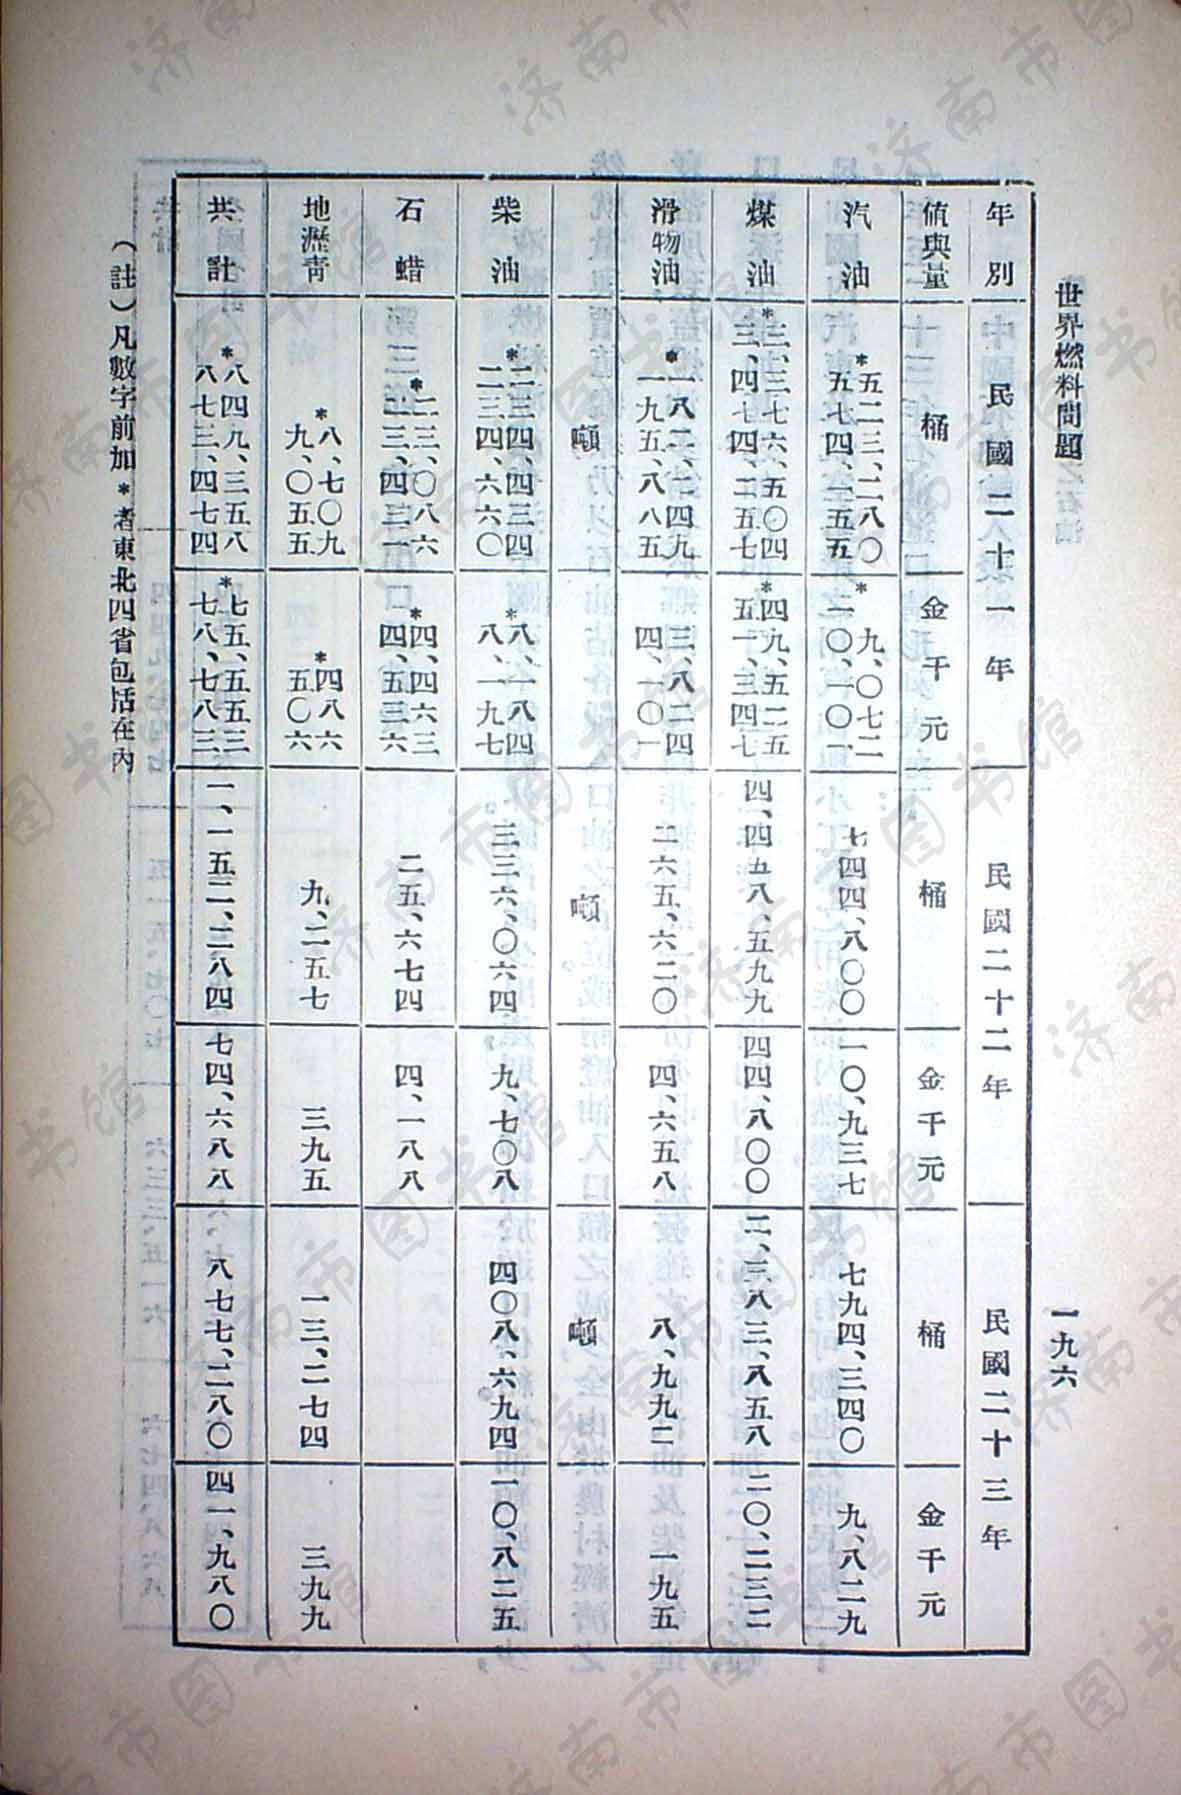 世界燃料問題
一九六
年別 民國二十一年 民國二十二年 民國二十三年
値與量 桶 金千元 桶 金千元 桶 金千元
汽油 *五二三、二八〇 五七四、一五五 *九、〇七二 一〇、一〇二 七四四、八〇〇 一〇、九三七 七九四、三四〇 九、八二九
煤油 *三、三七六、五〇四 三、四七四、二五七 *四九、五二五 五一、三四七 四、四五八、五九九 四四、八〇〇 二、三八三、八五八 二〇、二三二
滑物油 *一八二、二四九 一九五、八八五 三、八二四 四、一〇一 二六五、六二〇 四、六五八 八、九九二 一九五
噸 噸 噸
柴油 *二三四、四三四 二三四、六六〇 *八、一八四 八、一九七 三三六、〇六四 九、七〇八 四〇八、六九四 一〇、八二五
石蜡 *二三、〇八六 二三、四三一 *四、四六三 四、五三六 二五、六七四 四、一八八
地瀝靑 *八、七〇九 九、〇五五 *四八六 五〇六 九、二五七 三九五 一三、二七四 三九九
共計 *八四九、三五八 八七三、四七四 *七五、五五三 七八、七八三 一、一五二、二八四 七四、六八八 八七七、二八〇 四一、九八〇
（註）凡數字前加*者東北四省包括在內
济南市图书馆